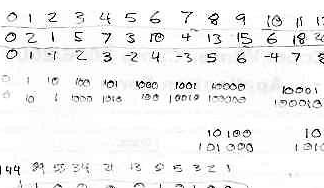 0 1 2 3 4 5 6 7 8 9 10 11
0 2 1 5 7 3 10 4 13 15 6 18
0 1 -1 2 3 -2 4 -3 5 6 -4 7
0 1 10 100 101 1000 1001 10000 10001
0 10 1 1000 1010 100 10010 10000 100010
10100 10
101000 1010
144 89 55 34 21 13 8 5 3 2 1